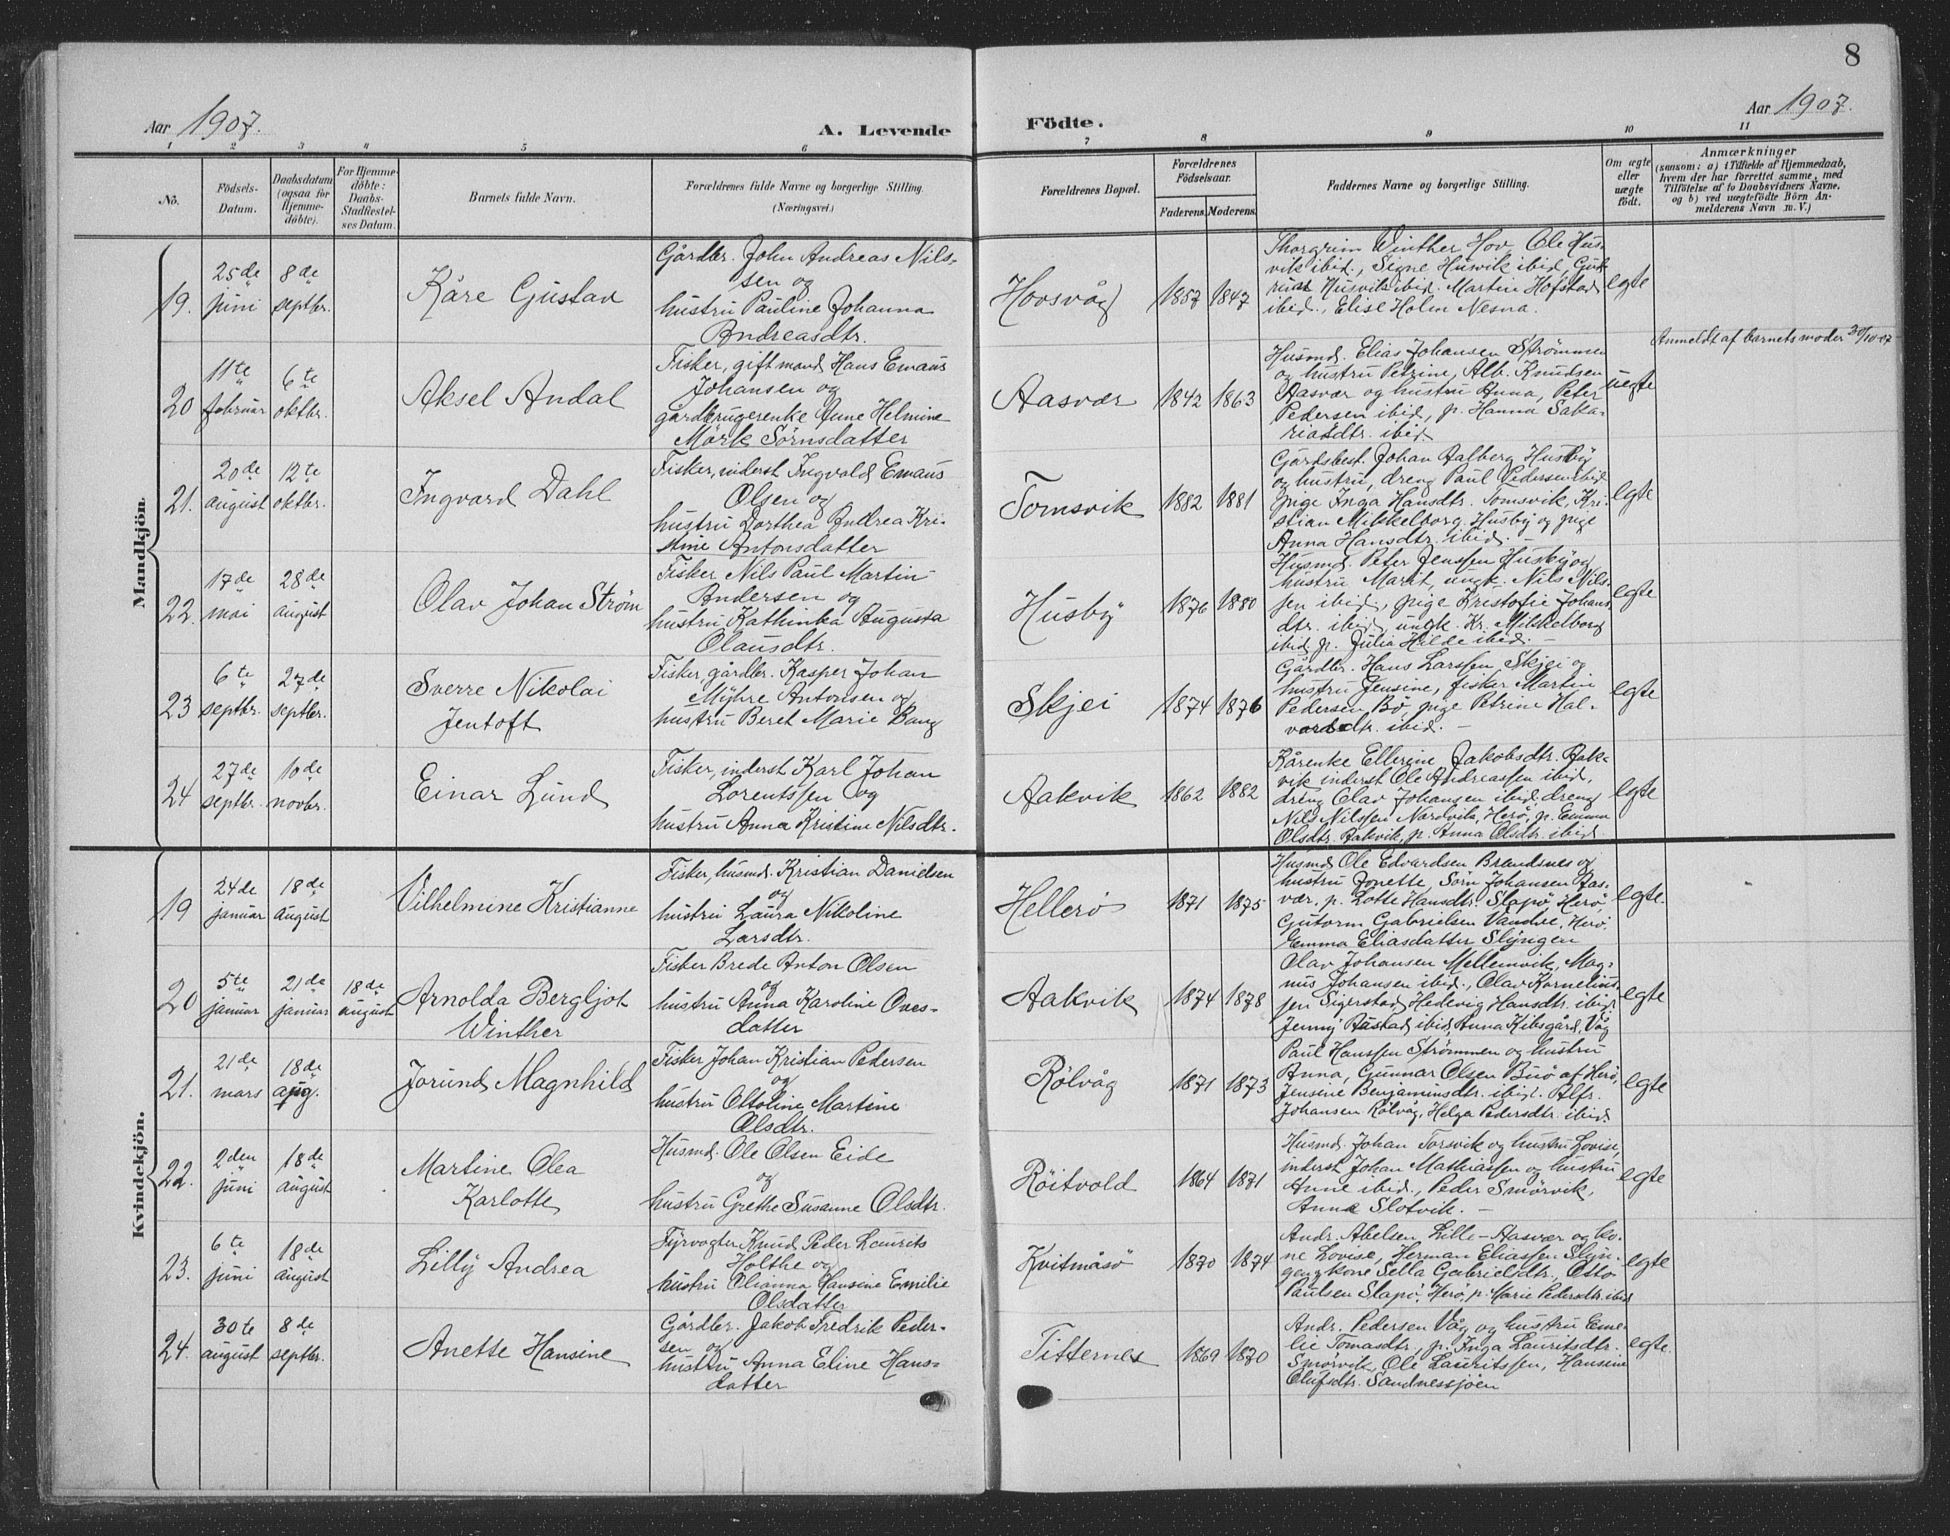 8
Aar 1907.
A. Levende
Födte.
Aar 1907.
1 2 3 4 5 6 7 8 9 10 11
No.
Födsels-
Datum.
Daabsdatum
(ogsaa for
Hjemme-
döbte).
For Hjemme-
döbte:
Daabs-
Stadfæstel-
ses Datum.
Barnets fulde Navn.
Forældrenes fulde Navne og borgerlige Stilling.
(Næringsvei.)
Forældrenes Bopæl.
Forældrenes
Födselsaar.
Faderens. Moderens.
Faddernes Navne og borgerlige Stilling.
Om ægte
eller
uægte
födt.
Anmærkninger
(saasom: a) i Tilfælde af Hjemmedaab,
hvem der har forrettet samme, med
Tilföielse af to Daabsvidners Navne.
og b) ved uægtefödte Börn An-
melderens Navn m. V.)
Mandkjön.
19.
25de
juni
8de
septbr.
Kåre Gustav
Gårdbr. John Andreas Nils-
sen og
hustru Pauline Johanna
Andreasdtr.
Hovsvåg
1857 1847
Thorgrim Winther Hov, Ole Hus-
vik ibid., Signe Husvik ibid, Gut-
Husvik ibid. Martin Hofstad
ibid., Elise Holm Nesna.
egte
20
11te
februar
6te
oktbr.
Aksel Andal
Fisker, gift mand Hans Emaus
Johansen og
gårdbrugerenke Anne Helmine
Mörk Sörnsdatter
Aasvær
1842 1863
Husmd. Elias Johansen Strømmen
og hustru Petrine, Alb. Knudsen
Aasvær og hustru Anna, Peter
Pedersen ibid, p. Hanna Saka-
riasdtr. ibid
uegte
Anmeldt af barnets moder 30/10-07
21.
20de
august
12te
oktbr.
Ingvard Dahl
Fisker, inderst Ingvald Emaus
Olsen og
hustru Dorthea Andrea Kri-
stine Antonsdatter
Tomsvik
1882 1881
Gårdsbest. Johan Aalberg Husby
og hustru, dreng Paul Pedersen ibid
pige Inga Hansdtr. Tomsvik, Kri-
stian Mikkelborg Husby og pige
Anna Hansdtr. ibid. -
egte
22.
17de
mai
28de
august
Olav Johan Strøm
Fisker Nils Paul Martin
Andersen og
hustru Kathinka Augusta
Olausdtr.
Husby
1876 1880
Husmd. Peter Jenssen Husby og
hustru Marit, ungk. Nils Nils-
sen ibid, pige Kristofie Johans
dtr. ibid, ungk. Kr. Mikkelborg
ibid p. Julia Hilde ibid. -
egte
23
6te
septbr.
27de
septbr.
Sverre Nikolai
Jentoft
Fisker, gårdbr. Kasper Johan
Myhre Antonsen og
hustru Beret Marie Bang
Skjei
1874 1876
Gårdbr. Hans Larssen Skjei og
hustru Jensine, fisker Martin
Pedersen Bø, pige Petrine Hal-
vardsdtr. ibid. -
egte
24
27de
septbr.
10de
novbr.
Einar Lund
Fisker, inderst Karl Johan
Lorentssen og
hustru Anna Kristine Nilsdtr.
Aakvik
1862 1882
Kårenke Ellerine Jakobsdtr. Aak-
vik inderst Ole Andreassen ibid,
dreng Olav Johansen ibid, dreng
Nils Nilssen Nordvik, Herø, p. Emma
Olsdtr. Aakvik, p. Anna Olsdtr. ibid.
egte
Kvindekjön.
19
24de
januar
18de
august
Vilhelmine Kristianne
Fisker, husmd. Kristian Danielsen
og
hustru Laura Nikoline
Larsdtr.
Hellerö
1871 1875
Husmd Ole Edvardsen Brendsnes og
hustru Jonette, Sörn Johansen Aas-
vær, p. Lotte Hansdtr. Slapø Herø,
Gutorm Gabrielsen Vandve, Herø,
Emma Eliasdatter Slyngen
egte.
20
5te
januar
21de
januar
18de
august
Arnolda Bergljot
Winther
Fisker Brede Anton Olsen
og
hustru Anna Karoline Oves-
datter
Aakvik
1874 1878
Olav Johansen Mellemvik, Mag-
nus Johansen ibid., Olav Kornelius-
sen Sigerstad, Hedevig Hansdtr. ibid.
Jenny Aastad ibid, Anna Kibsgård, Våg
egte
21.
21de
mars
18de
aug.
Jorund Magnhild
Fisker Johan Kristian Pedersen
og
hustru Ottoline Martine
Olsdtr.
Rölvåg
1871 1873
Paul Hanssen Strømmen og hustru
Anna, Gunnar Olsen Buø af Herø,
Jensine Benjaminsdtr. ibid. Alfr.
Johansen Rölvåg, Helga Pedersdtr. ibid.
egte
22.
2den
juni
18de
august
Martine Olea
Karlotte
Husmd. Ole Olsen Eide
og
hustru Grethe Susanne Olsdtr.
Röitvold
1864 1871
Husmd. Johan Torsvik og hustru Lovise,
inderst Johan Mathiassen og hustru
Anne ibid., Peder Smörvik,
Anna Slotvik. -
egte
23.
6te
juni
18de
august
Lilly Andrea
Fyrvogter Knud Peder Laurits
Holthe og
hustru Olianna Hansine Emilie
Olsdatter
Kvitmåsö
1870 1874
Andr. Abelsen Lille-Aasvær og ko-
ne Lovise, Herman Eliassen Slyn-
gen, kone Sella Gabrielsdtr., Otto
Paulsen Slapø, Herø, p. Marie Pedersdtr. ibid
egte
24.
30te
august
8de
septbr.
Anette Hansine
Gårdbr. Jakob Fredrik Peder-
sen og
hustru Anna Eline Hans-
datter
Titternes
1869 1870
Andr. Pedersen Våg og hustru Eme-
lie Tomasdtr., p. Inga Lauritsdtr.
Smörvik, Ole Lauritssen, Hansine
Olufsdtr. Sandnessjöen
egte.